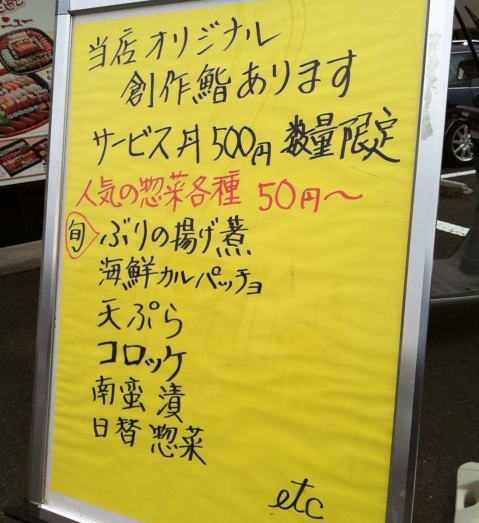 当店オリジナル
創作鮨あります
サービス丼500円 数量限定
人気の惣菜各種 50円～
旬 ぶりの揚げ煮
海鮮カルパッチョ
天ぷら
コロッケ
南蛮漬
日替惣菜
etc